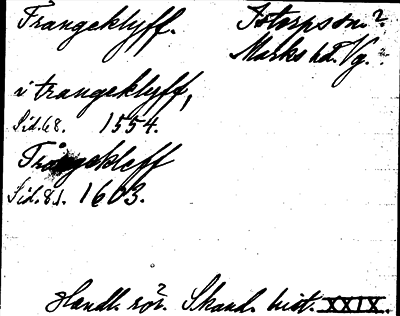 Trangeklyff. Istorps sn.?
Marks hd. Vg.?
i trangeklyff,
Sid. 68. 1554.
Trångekleff
Sid. 81. 1603.
Handl. rör. Skand. hist. XXIX.